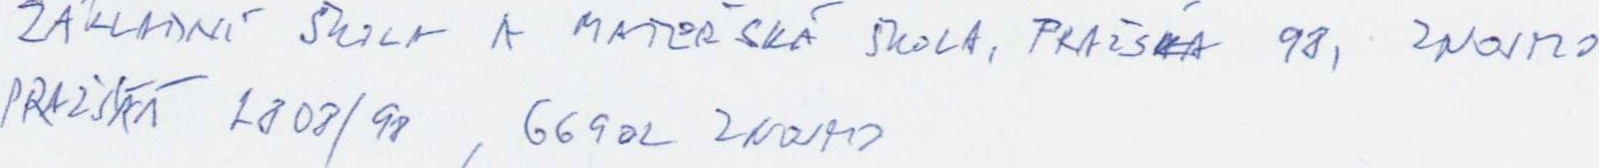 ZÁKLADNÍ ŠKOLA A MATEŘSKÁ ŠKOLA, PRAŽSKÁ 98, ZNOJMO
PRAŽSKÁ 2808/98, 66902 ZNOJMO